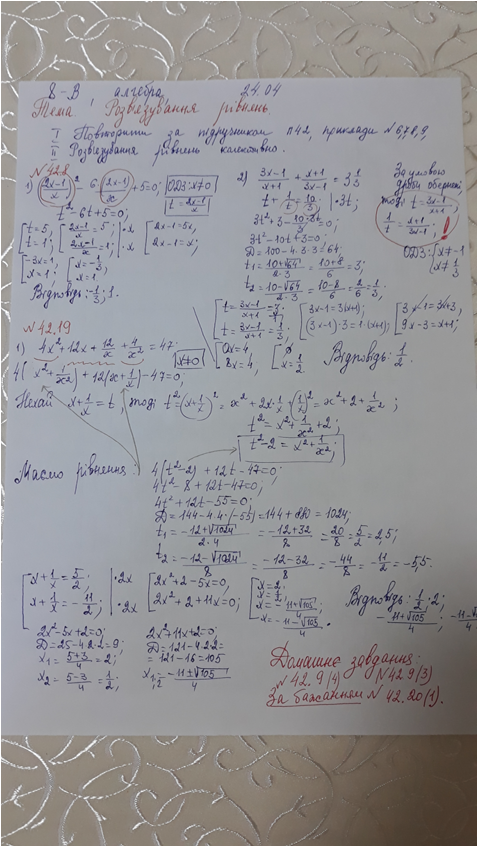 8-В алгебра 24.04
Тема: Розв'язування рівнянь.
I Повторити за підручником п42, приклади №6,7,8,9,
II Розв'язування рівнянь колективно.
№42.8
1) (2x-1/x)² - 6(2x-1/x) + 5 = 0; ОДЗ: x≠0
t = 2x-1/x
t² - 6t + 5 = 0;
[t = 5, t = 1; [2x-1/x = 5; 2x-1/x = 1; |·x |·x [2x-1 = 5x, 2x-1 = x;
[-3x = 1, x = 1; [x = -1/3; x = 1;
Відповідь: -1/3; 1.
2) 3x-1/x+1 + x+1/3x-1 = 3 1/3
t + 1/t = 10/3; |·3t;
3t² + 3 - 10·3t/3 = 0;
3t² - 10t + 3 = 0;
D = 100 - 4·3·3 = 64;
t₁ = 10+√64/2·3 = 10+8/6 = 3;
t₂ = 10-√64/2·3 = 10-8/6 = 2/6 = 1/3.
За умовою
дроби обернені
тоді t = 3x-1/x+1
1/t = x+1/3x-1; !
ОДЗ: {x≠-1 x≠1/3
[t = 3x-1/x+1 [3x-1 = 3(x+1); [3x-1 = 3x+3,
[t = 3x-1/x+1 = 1/3; (3x-1)·3 = 1·(x+1); 9x-3 = x+1;
[0x = 4, 8x = 4, [∅ x = 1/2. Відповідь: 1/2.
№42.19
1) 4x² + 12x + 12/x + 4/x² = 47.
x≠0
4(x² + 1/x²) + 12(x + 1/x) - 47 = 0;
Нехай x + 1/x = t, тоді t² = (x + 1/x)² = x² + 2x·1/x + (1/x)² = x² + 2 + 1/x²;
t² = x² + 1/x² + 2;
t² - 2 = x² + 1/x²;
Маємо рівняння: 4(t² - 2) + 12t - 47 = 0;
4t² - 8 + 12t - 47 = 0;
4t² + 12t - 55 = 0;
D = 144 - 4·4·(-55) = 144 + 880 = 1024;
t₁ = -12+√1024/2·4 = -12+32/8 = 20/8 = 5/2 = 2,5;
t₂ = -12-√1024/8 = -12-32/8 = -44/8 = -11/2 = -5,5.
[x + 1/x = 5/2; x + 1/x = -11/2; |·2x |·2x [2x² + 2 - 5x = 0, 2x² + 2 + 11x = 0; [x = 2; x = 1/2, x = -11+√105/4 x = -11-√105/4.
Відповідь: 1/2; 2; -11+√105/4; -11-√105/4
2x² - 5x + 2 = 0;
D = 25 - 4·2·2 = 9;
x₁ = 5+3/4 = 2;
x₂ = 5-3/4 = 1/2;
2x² + 11x + 2 = 0;
D = 121 - 4·2·2 =
= 121 - 16 = 105
x₁,₂ = -11±√105/4
Домашнє завдання:
№42.9(4) №42.9(3)
За бажанням №42.20(1).